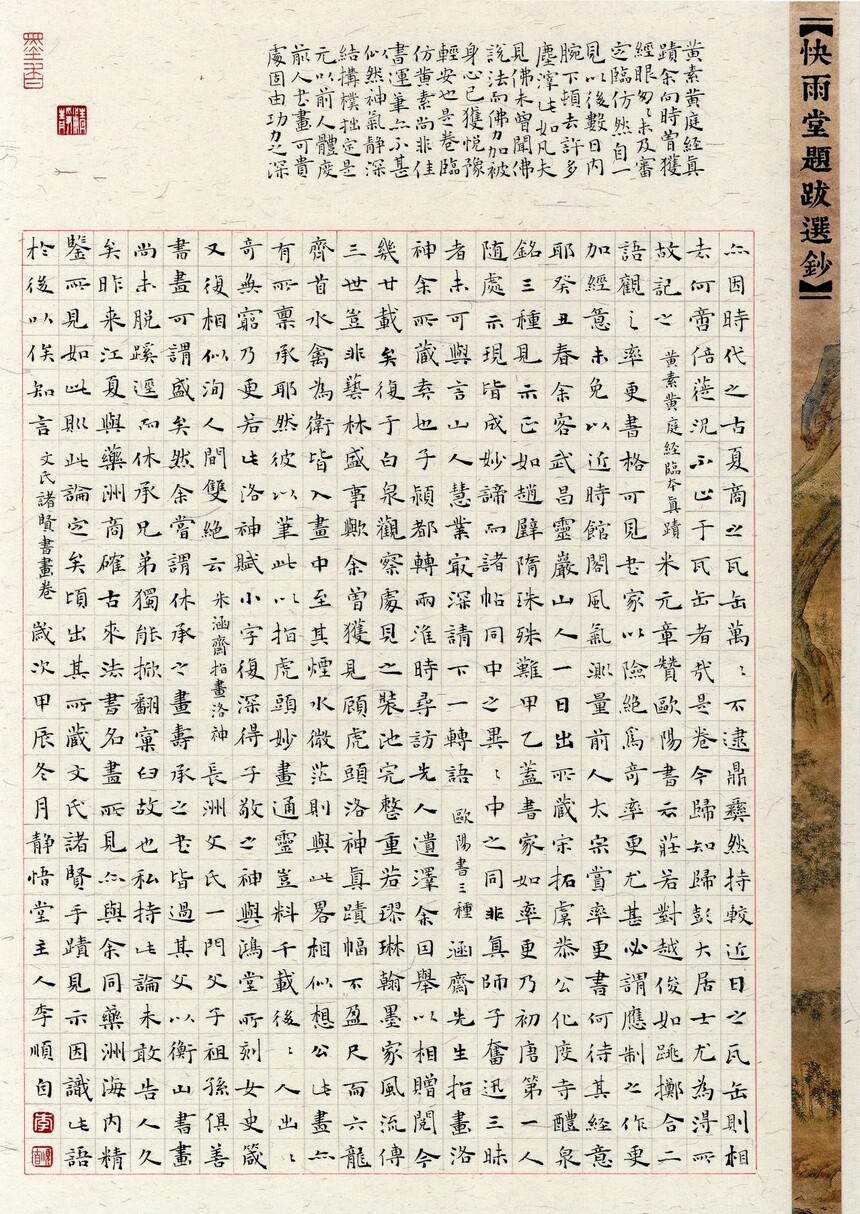 【快雨堂題跋選鈔】
黃素黃庭經真
蹟余向時曾獲
經眼匆匆未及審
定臨仿然自一
見以後數日內
腕下頓去許多
塵滓此如凡夫
見佛未曾聞佛
說法而佛力加被
身心已獲悅豫
輕安也是卷臨
仿黃素尚非佳
書運筆亦不甚
似然神氣靜深
結搆樸拙定是
元以前人體度
前人書畫可貴
處固由功力之深
亦因時代之古夏商之瓦缶萬萬不逮鼎彝然持較近日之瓦缶則相
去何啻倍蓰況不止于瓦缶者哉是卷今歸知歸彭大居士尤為得所
故記之 黃素黃庭經臨本真蹟 米元章贊歐陽書云莊若對越俊如跳擲合二
語觀之率更書格可見書家以險絕為奇率更尤甚必謂應制之作更
加經意未免以近時館閣風氣測量前人太宗賞率更書何待其經意
耶癸丑春余客武昌靈巖山人一日出所藏宗拓虞恭公化度寺醴泉
銘三種見示正如趙璧隋珠殊難甲乙蓋書家如率更乃初唐第一人
隨處示現皆成妙諦而諸帖同中之異異中之同非真師子奮迅三昧
者未可與言山人慧業最深請下一轉語 歐陽書三種 涵齋先生指畫洛
神余所藏弆也子潁都轉兩淮時尋訪先人遺澤余因舉以相贈閱今
幾廿載矣復于白泉觀察處見之裝池完整重若璆琳翰墨家風流傳
三世豈非藝林盛事歟余曾獲見顧虎頭洛神真蹟幅不盈尺而六龍
齊首水禽為衛皆入畫中至其煙水微茫則與此畧相似想公此畫亦
有所稟承耶然彼以筆此以指虎頭妙畫通靈豈料千載後後人出出
奇無窮乃更若此洛神賦小字復深得子敬之神與鴻堂所刻女史箴
又復相似洵人間雙絕云 朱涵齋指畫洛神 長洲文氏一門父子祖孫俱善
書畫可謂盛矣然余嘗謂休承之畫壽承之書皆過其父以衡山書畫
尚未脫蹊逕而休承兄弟獨能掀翻窠臼故也私持此論未敢告人久
矣昨来江夏與藥洲商確古來法書名畫所見亦與余同藥洲海內精
鑒所見如此則此論定矣頃出其所藏文氏諸賢手蹟見示因識此語
於後以俟知言 文氏諸賢書畫卷 歲次甲辰冬月靜悟堂主人李順自